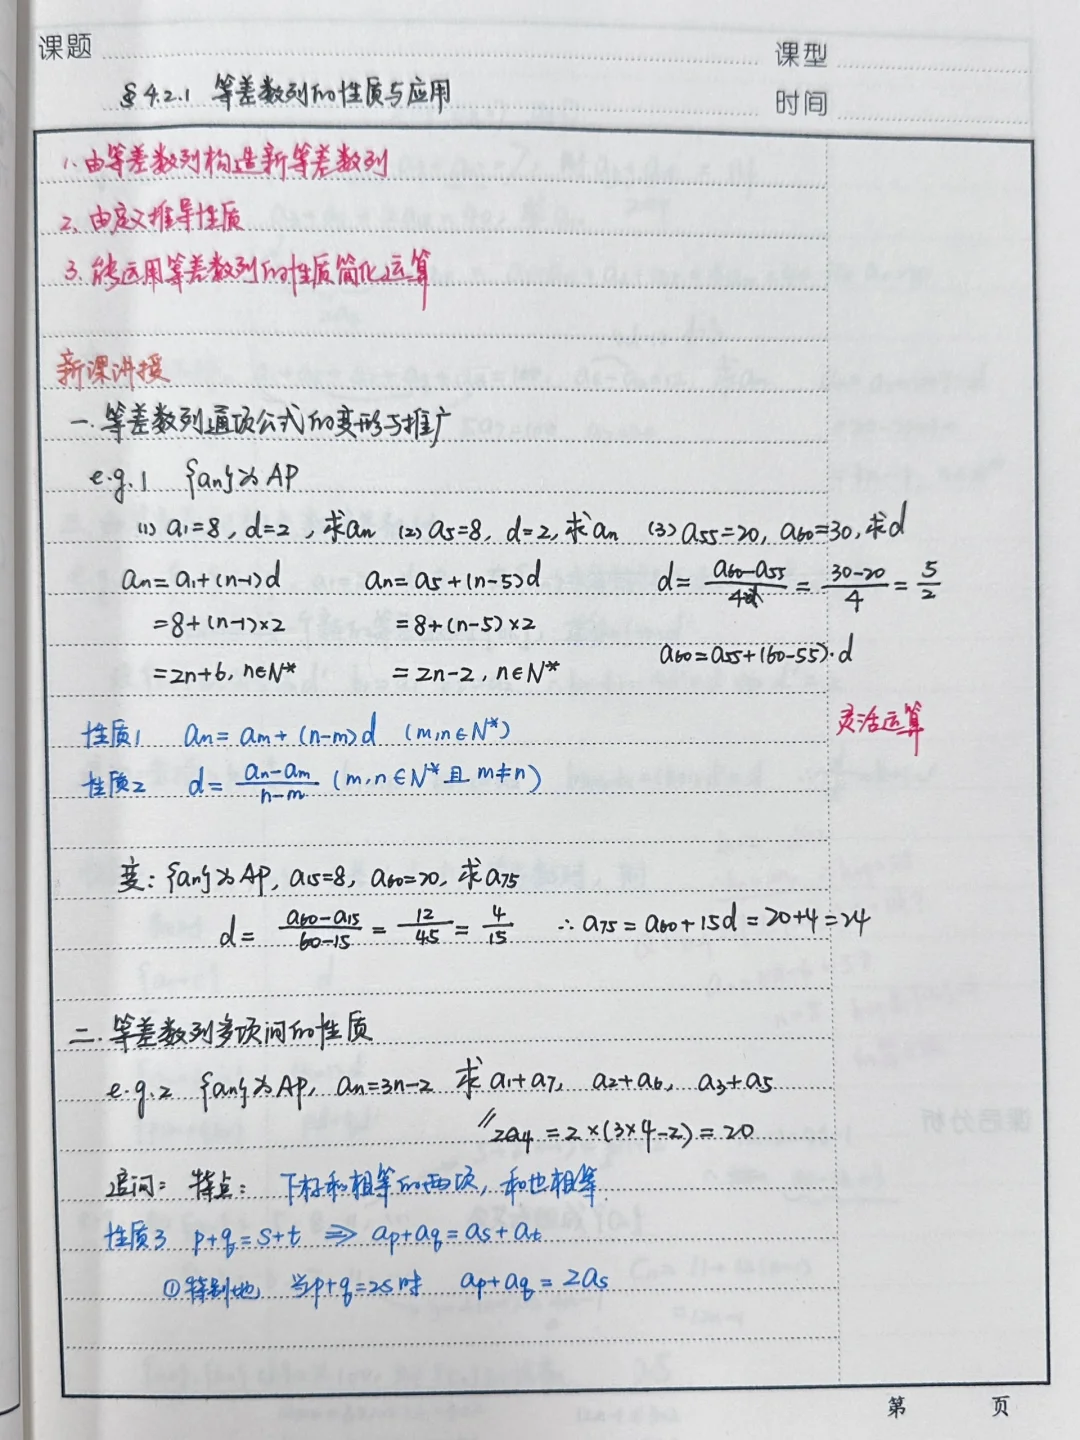 课题
课型
§4.2.1 等差数列的性质与应用
时间
1. 由等差数列构造新等差数列
2. 由定义推导性质
3. 能运用等差数列的性质简化运算
新课讲授
一. 等差数列通项公式的变形与推广
e.g.1 {an}为AP
(1) a1=8, d=2, 求an (2) a5=8, d=2, 求an (3) a55=20, a60=30, 求d
an=a1+(n-1)d an=a5+(n-5)d d=(a60-a55)/4=(30-20)/4=5/2
=8+(n-1)×2 =8+(n-5)×2
=2n+6, n∈N* =2n-2, n∈N* a60=a55+(60-55)·d
性质1 an=am+(n-m)d (m,n∈N*) 灵活运算
性质2 d=(an-am)/(n-m) (m,n∈N*且m≠n)
变: {an}为AP, a15=8, a60=20, 求a75
d=(a60-a15)/(60-15)=12/45=4/15 ∴a75=a60+15d=20+4=24
二. 等差数列多项间的性质
e.g.2 {an}为AP, an=3n-2 求a1+a7, a2+a6, a3+a5
∥ 2a4=2×(3×4-2)=20
追问: 特点: 下标和相等的两项, 和也相等.
性质3 p+q=s+t ⇒ ap+aq=as+at
①特别地, 当p+q=2s时 ap+aq=2as
第 页